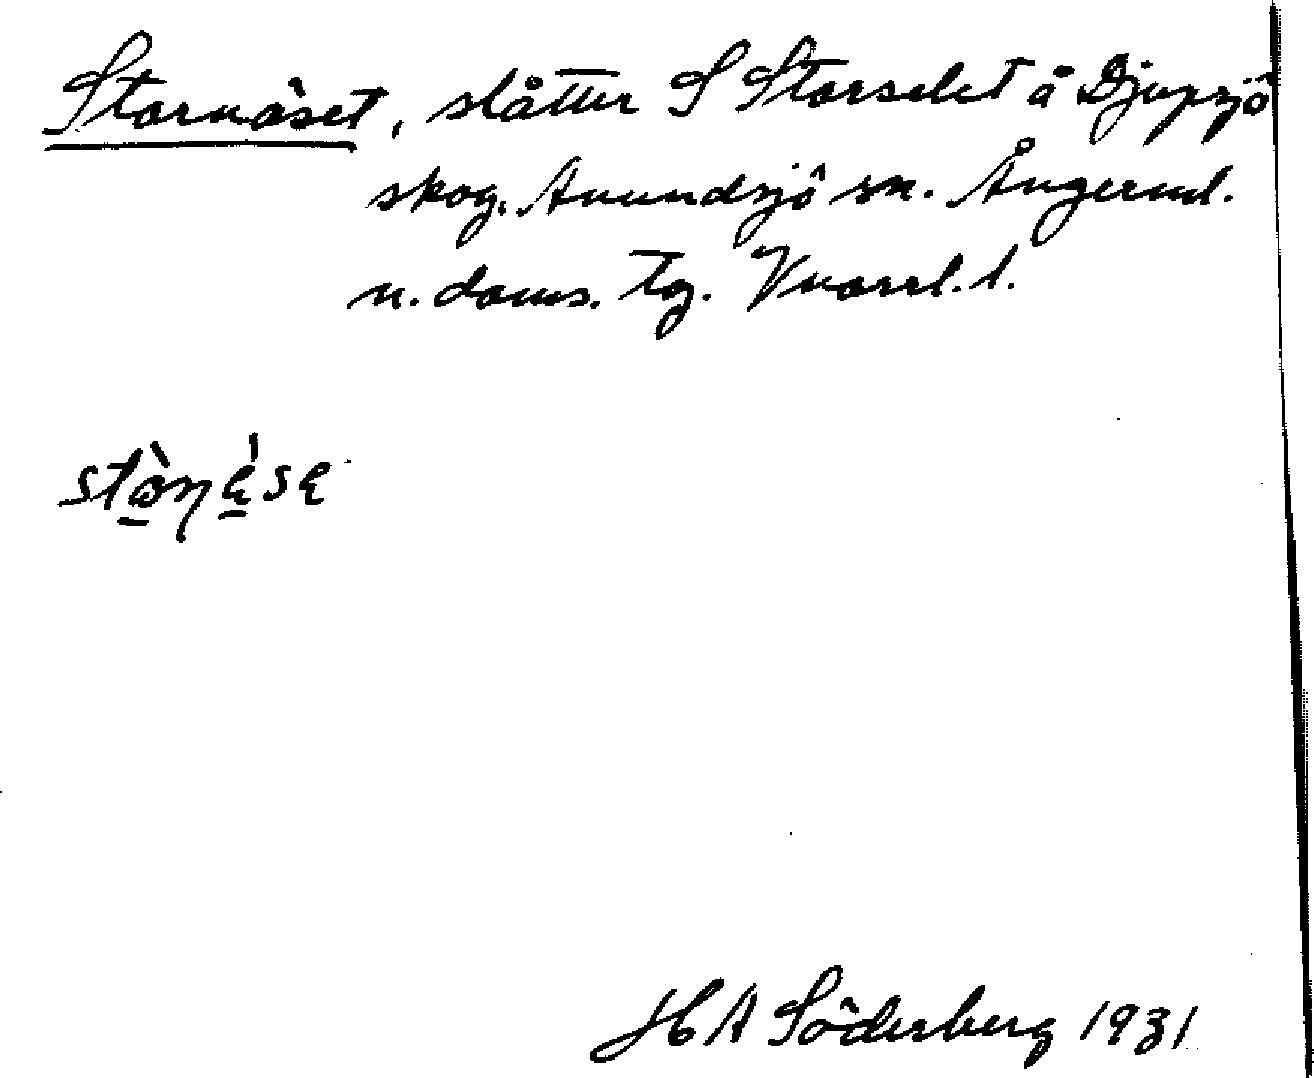 Stornäset, slåtter S Storselet å Djupsjö
skog, Anundsjö sn. Ångerml.
n. doms. tg. Vnorrl. l.
HA Söderberg 1931